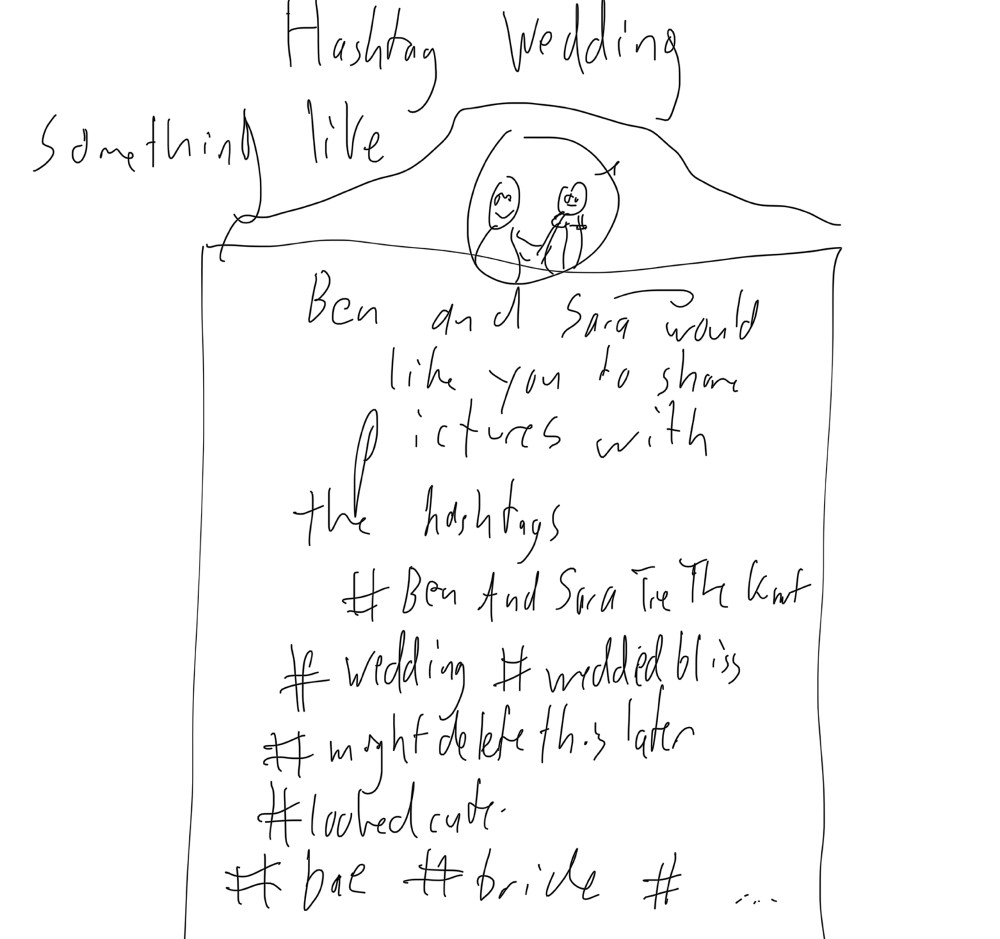 Hashtag Wedding
something like
Ben and Sara would
like you to share
pictures with
the hashtags
#BenAndSaraTieTheKnot
#wedding #weddedbliss
#mightdeletethislater
#lookedcute.
#bae #bride # ...